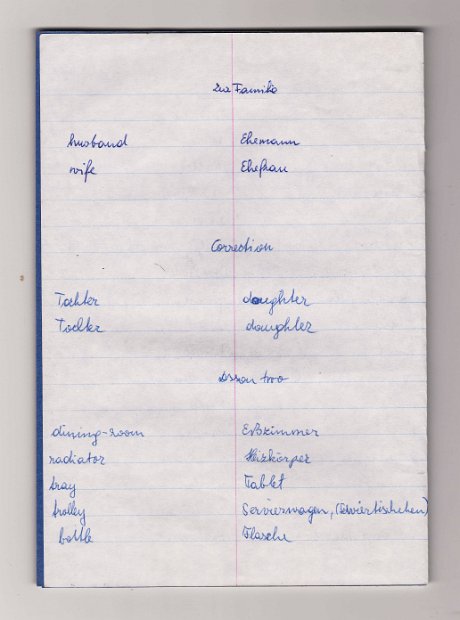 Die Familie
husband Ehemann
wife Ehefrau
Correction
Tochter daughter
Tochter daughter
Lesson two
dining-room Eßzimmer
radiator Heizkörper
tray Tablet
trolley Servierwagen, (Serviertischchen)
bottle Flasche